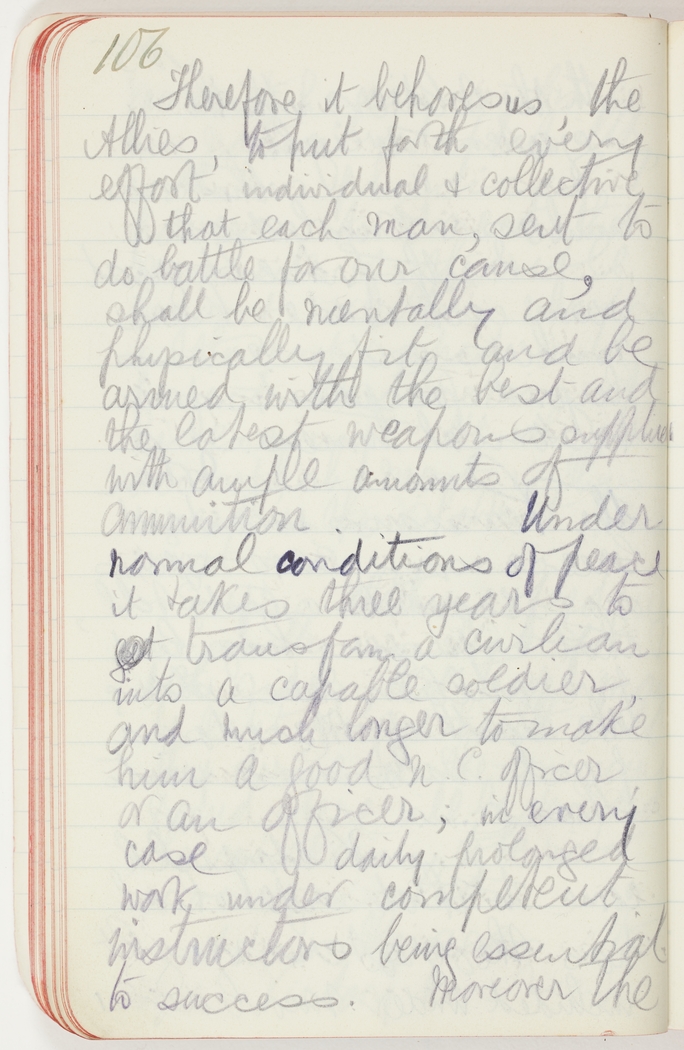 106
Therefore it behoves us, the
Allies, to put forth every
effort individual & collective
that each man, sent to
do battle for our cause,
shall be mentally and
physically fit and be
armed with the best and
the latest weapons supplied
with ample amounts of
ammunition. Under
normal conditions of peace
it takes three years to
transform a civilian
into a capable soldier,
and much longer to make
him a good N.C. Officer
or an officer; in every
case daily prolonged
work under competent
instructors being essential
to success. Moreover the